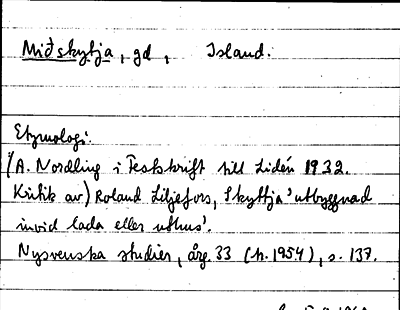 Miðskytja, gd, Island.
Etymologi:
(A. Nordling i Festskrift till Lidén 1932.
Kritik av) Roland Liljefors, Skyttja 'utbyggnad
invid lada eller uthus'.
Nysvenska studier, årg. 33 (h. 1954), s. 137.